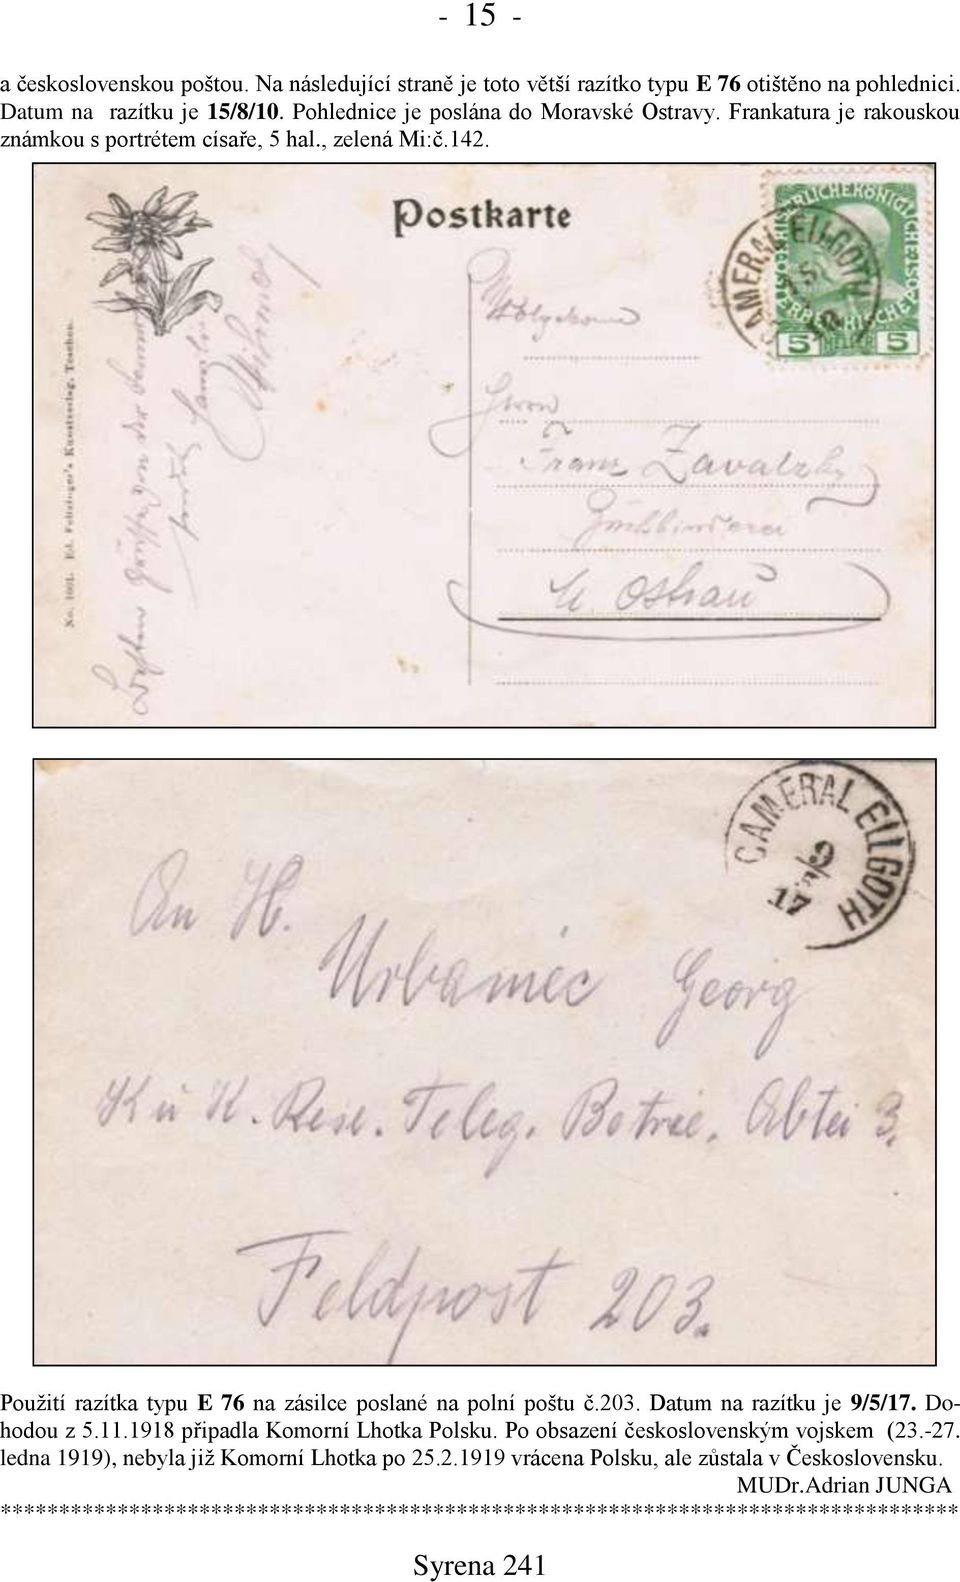 - 15 -
a československou poštou. Na následující straně je toto větší razítko typu E 76 otištěno na pohlednici.
Datum na razítku je 15/8/10. Pohlednice je poslána do Moravské Ostravy. Frankatura je rakouskou
známkou s portrétem císaře, 5 hal., zelená Mi:č.142.
Postkarte
5 HELLER 5
AMERAL ELLGOTH
No. 1001. Ed. Feitzinger's Kunstverlag, Teschen.
Herrn
Franz Zavatzky
M. Ostrau
CAMERAL ELLGOTH
17
An H.
Urbaniec Georg
K u K. Rese. Teleg. Betrie. Abtei 3.
Feldpost 203.
Použití razítka typu E 76 na zásilce poslané na polní poštu č.203. Datum na razítku je 9/5/17. Do-
hodou z 5.11.1918 připadla Komorní Lhotka Polsku. Po obsazení československým vojskem (23.-27.
ledna 1919), nebyla již Komorní Lhotka po 25.2.1919 vrácena Polsku, ale zůstala v Československu.
MUDr.Adrian JUNGA
**********************************************************************************
Syrena 241